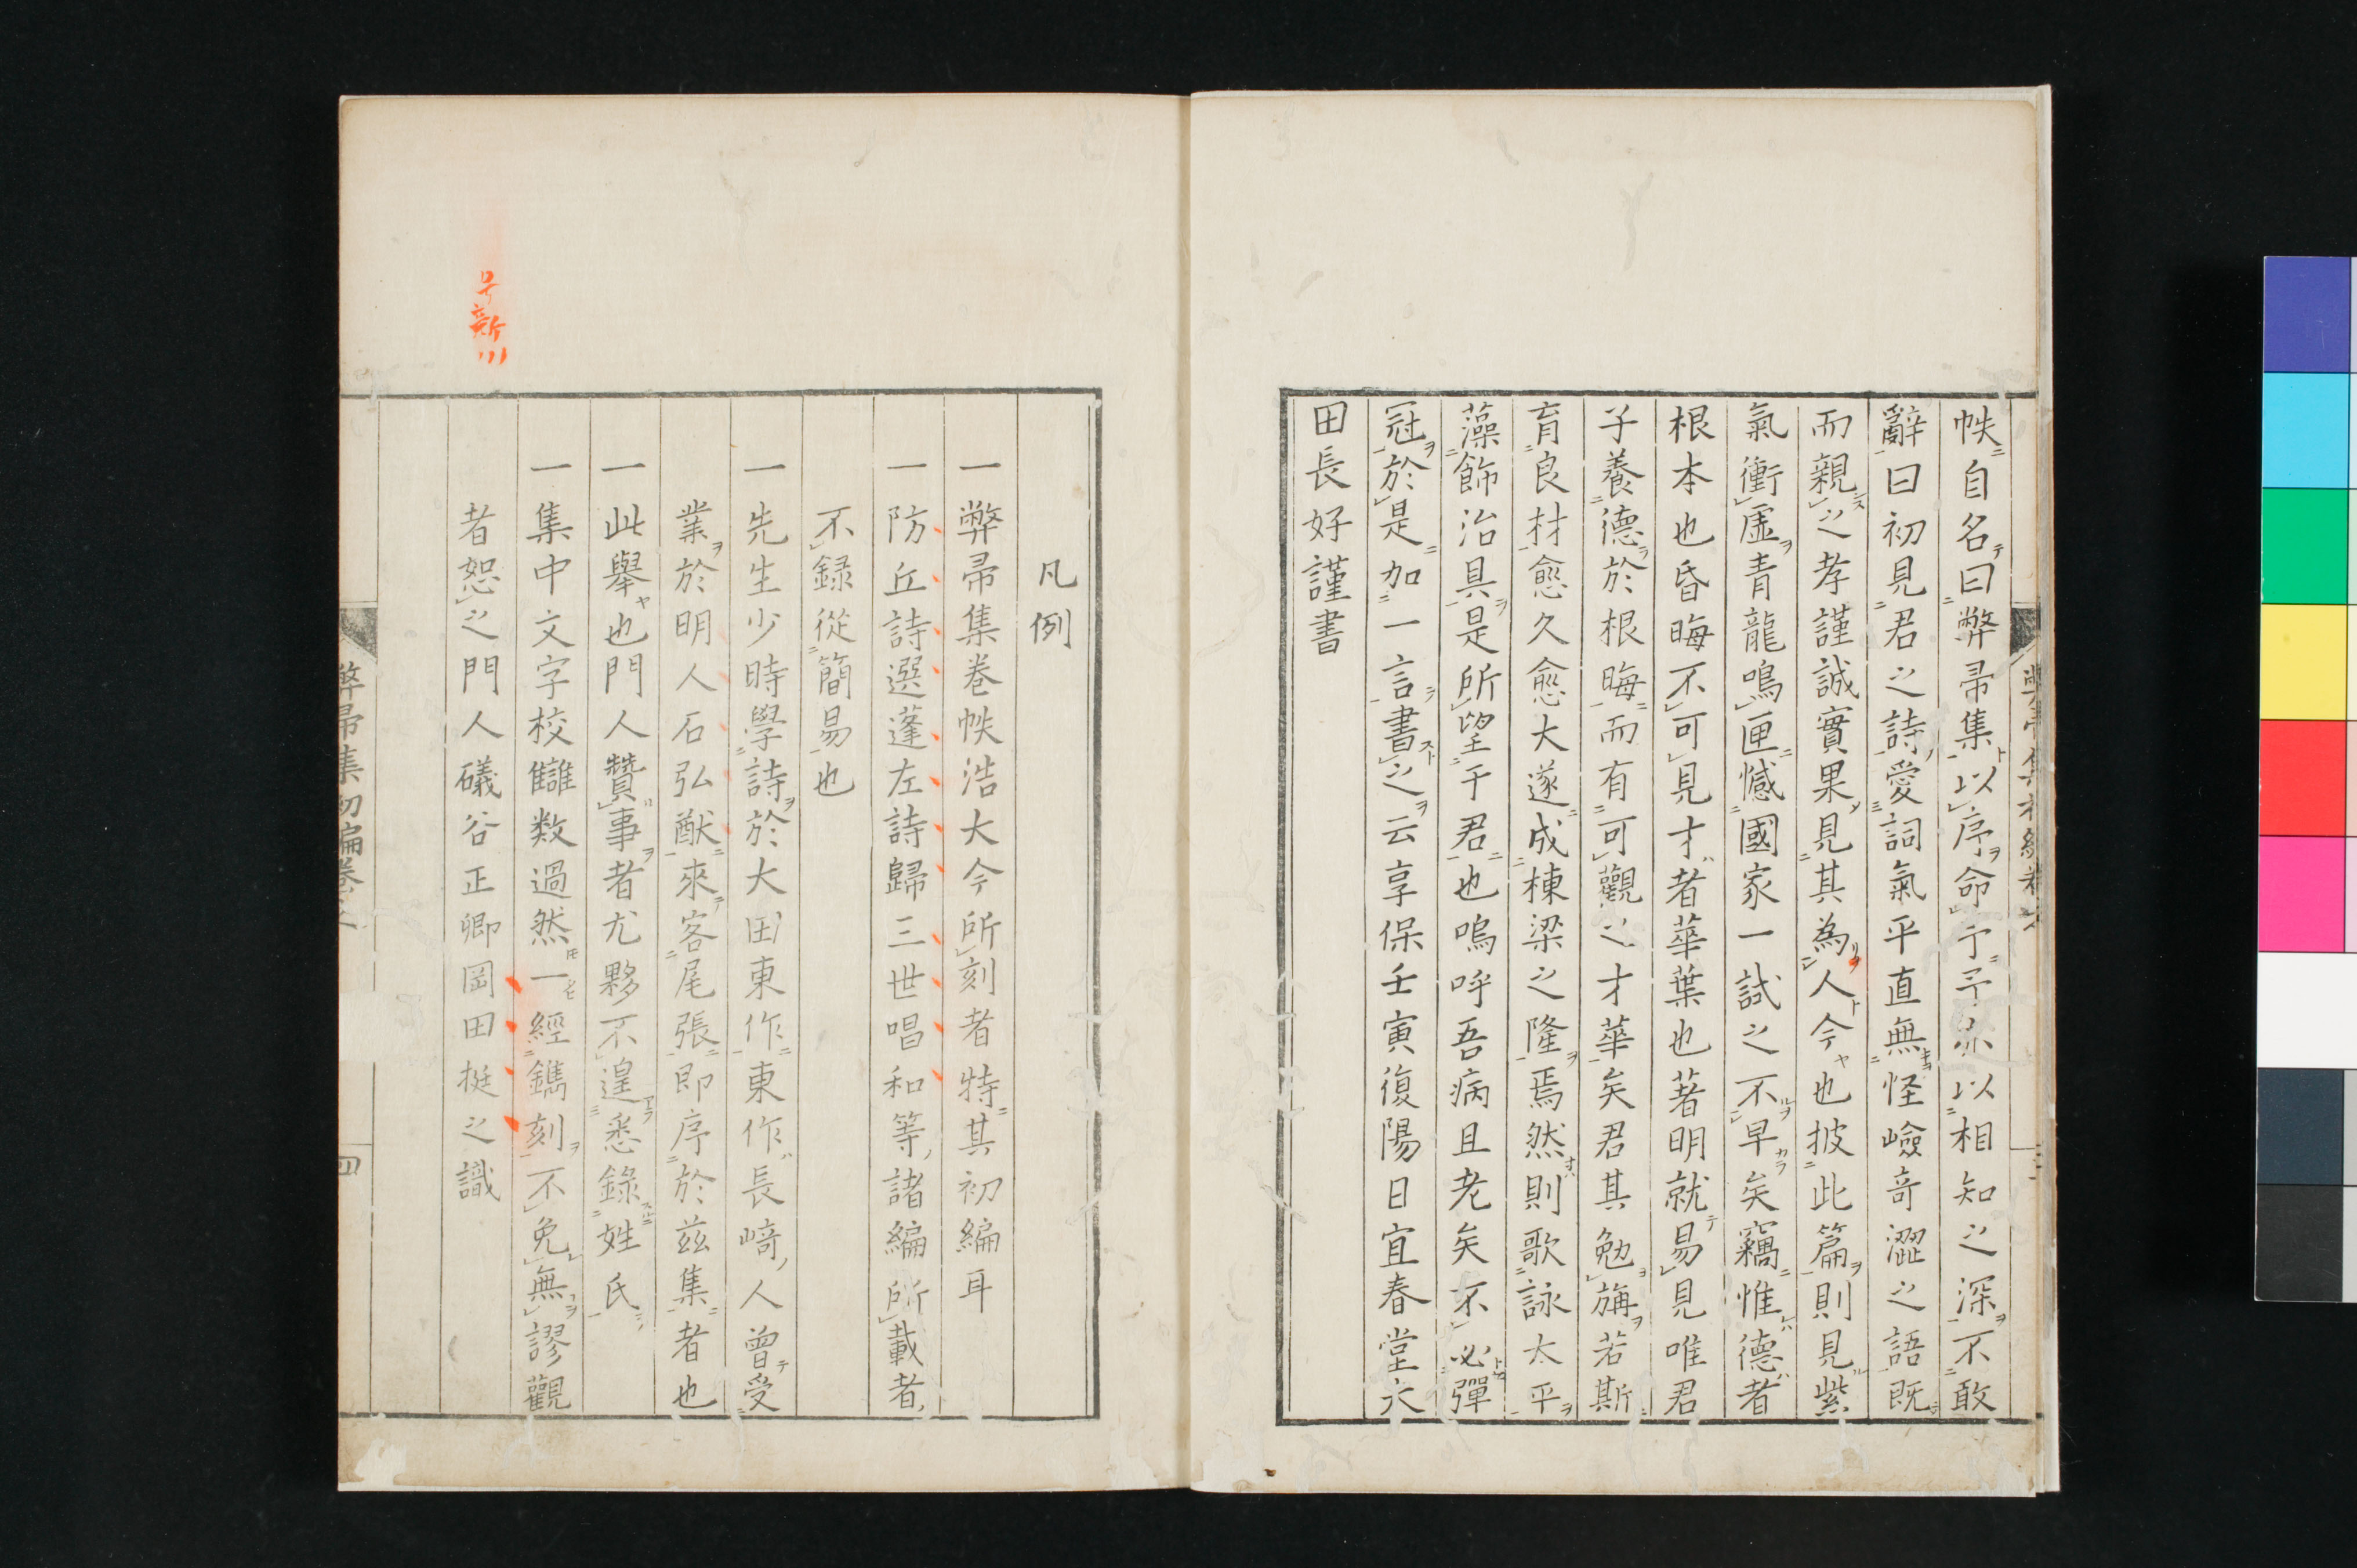 帙自名曰弊帚集以序命于予亦以相知之深不敢
辭曰初見君之詩愛詞氣平直無怪嶮奇澀之語既
而親之孝謹誠實果見其為人今也披此篇則見紫
氣衝虛青龍鳴匣憾國家一試之不早矣竊惟德者
根本也昏晦不可見才者華葉也著明就易見唯君
子養德於根晦而有可觀之才華矣君其勉旃若斯
育良材愈久愈大遂成棟梁之隆焉然則歌詠太平
藻飾治具是所望于君也嗚呼吾病且老矣不必彈
冠於是加一言書之云享保壬寅復陽日宜春堂大
田長好謹書
凡例
一弊帚集卷帙浩大今所刻者特其初編耳
一防丘詩選蓬左詩歸三世唱和等諸編所載者
不録從簡易也
一先生少時學詩於大田東作東作長﨑人曾受
業於明人石弘猷來客尾張即序於茲集者也
一此舉也門人贊事者尤夥不遑悉錄姓氏
一集中文字校讎数過然一經鐫刻不免無謬觀
者恕之門人礒谷正卿岡田挺之識
弊帚集初編卷之
四